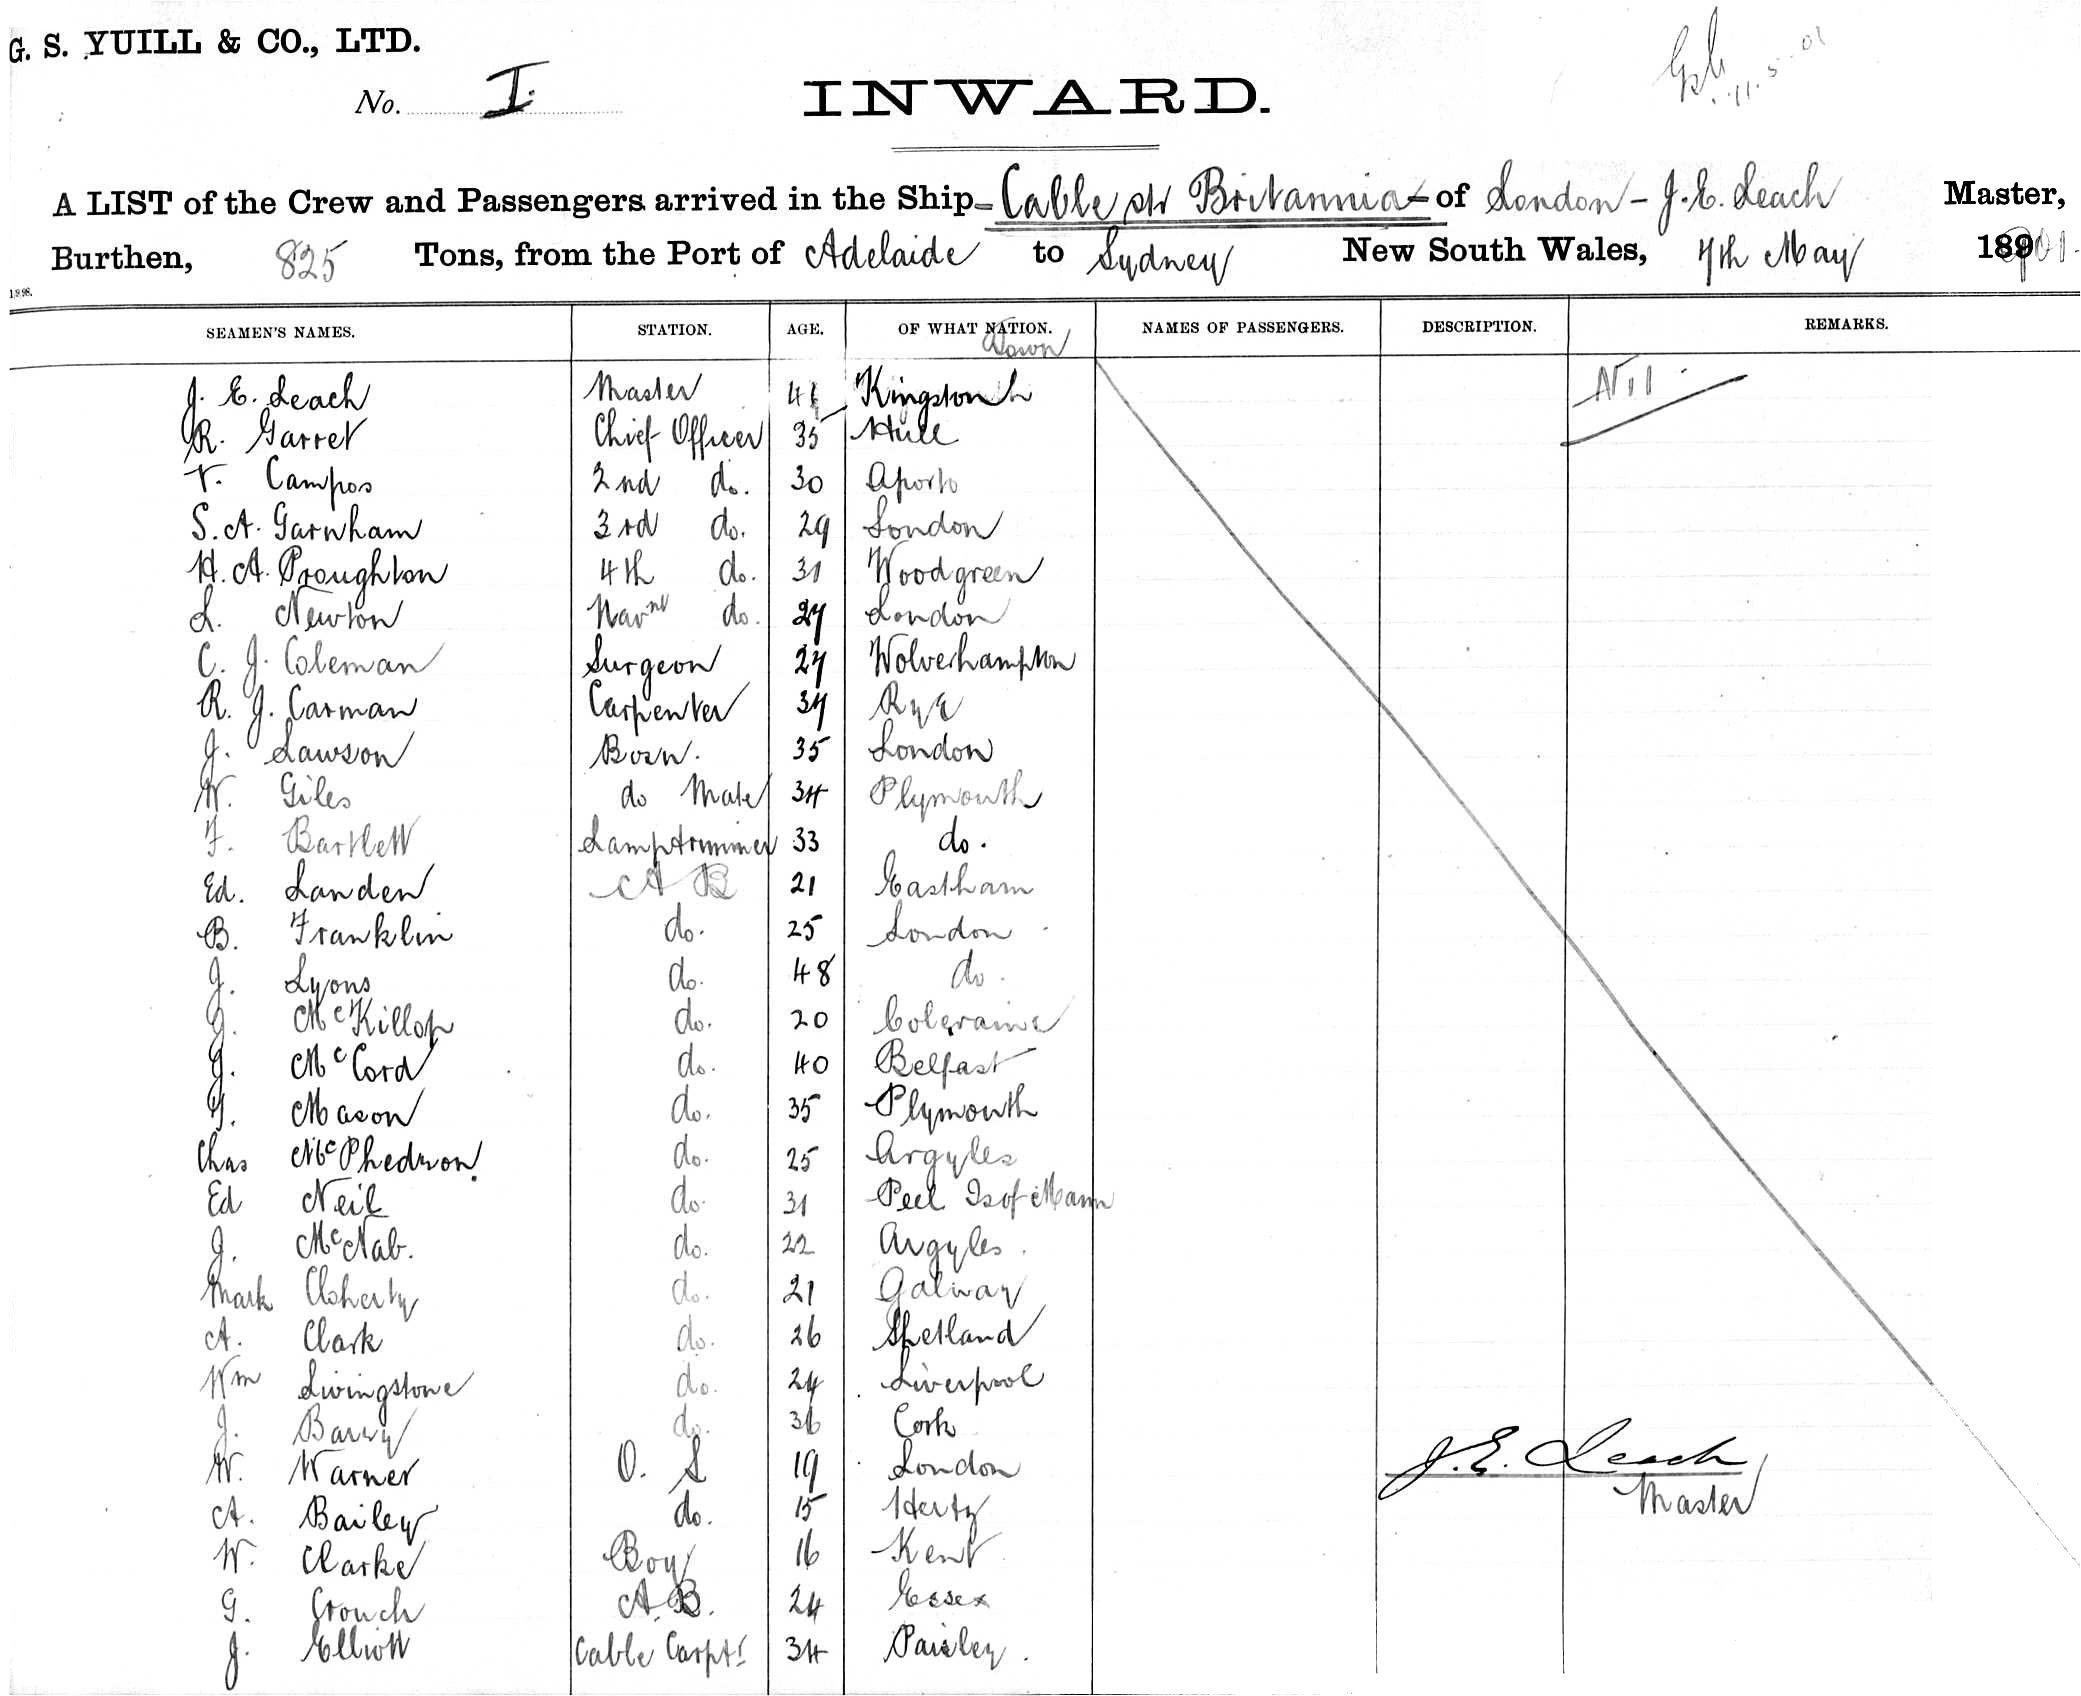 G. S. YUILL & CO., LTD.
No. I.
INWARD.
11.5.01
A LIST of the Crew and Passengers arrived in the Ship Cable str Britannia of London - J. E. Leach Master,
Burthen, 825 Tons, from the Port of Adelaide to Sydney New South Wales, 7th May 1901
SEAMEN'S NAMES. STATION. AGE. OF WHAT NATION. NAMES OF PASSENGERS. DESCRIPTION. REMARKS.
Town
J. E. Leach Master 41 Kingston Nil
R. Garret Chief Officer 35 Hull
V. Campos 2nd do. 30 Oporto
S. A. Garnham 3rd do. 29 London
H. A. Proughton 4th do. 31 Woodgreen
L. Newton do. 27 London
C. J. Coleman Surgeon 27 Wolverhampton
R. J. Carman Carpenter 37 Rye
J. Lawson Bosn. 35 London
W. Giles do Mate 34 Plymouth
F. Bartlett Lamptrimmer 33 do.
Ed. Landen A B 21 Eastham
B. Franklin do. 25 London
J. Lyons do. 48 do.
J. McKillop do. 20 Coleraine
J. McCord do. 40 Belfast
J. Mason do. 35 Plymouth
Chas McPhedron do. 25 Argyles
Ed Neil do. 31 Peel Isof Mann
J. McNab. do. 22 Argyles
Mark Cloherty do. 21 Galway
A. Clark do. 26 Shetland
Wm Livingstone do. 24 Liverpool
J. Barry do. 36 Cork
W. Warner O. S 19 London
A. Bailey do. 15 Hertz
W. Clarke Boy 16 Kent
G. Crouch A.B. 24 Essex
J. Elliott Cable Carptr 34 Paisley.
J. E. Leach
Master